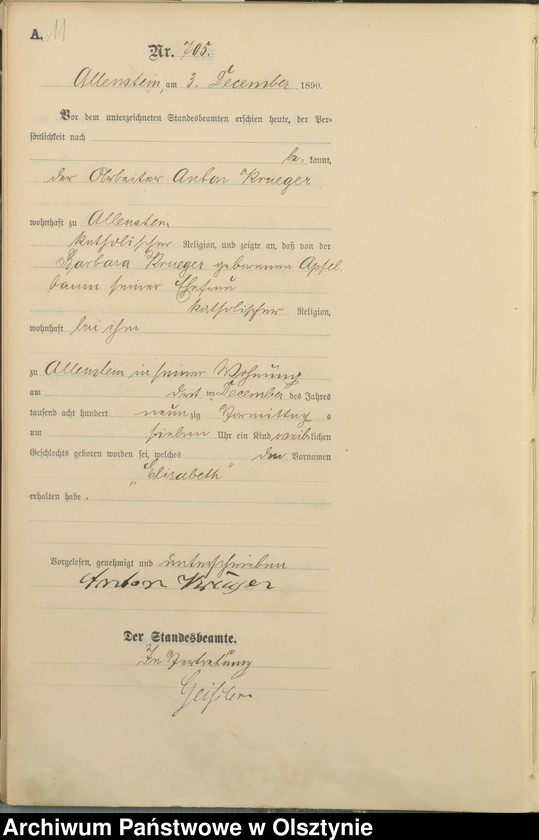 A. 11
Nr. 705.
Allenstein, am 3. December 1890.
Vor dem unterzeichneten Standesbeamten erschien heute, der Per-
sönlichkeit nach
be kannt,
der Arbeiter Anton Krueger
wohnhaft zu Allenstein
katholischer Religion, und zeigte an, daß von der
Barbara Krueger geborenen Apfel
baum seiner Ehefrau
katholischer Religion,
wohnhaft bei ihm
zu Allenstein in seiner Wohnung
am drit ten December des Jahres
tausend acht hundert neun zig Vormittag s
um sieben Uhr ein Kind weib lichen
Geschlechts geboren worden sei, welches den Vornamen
„Elisabeth“
erhalten habe .
Vorgelesen, genehmigt und unterschrieben
Anton Krüger
Der Standesbeamte.
In Vertretung
Archiwum Państwowe w Olsztynie